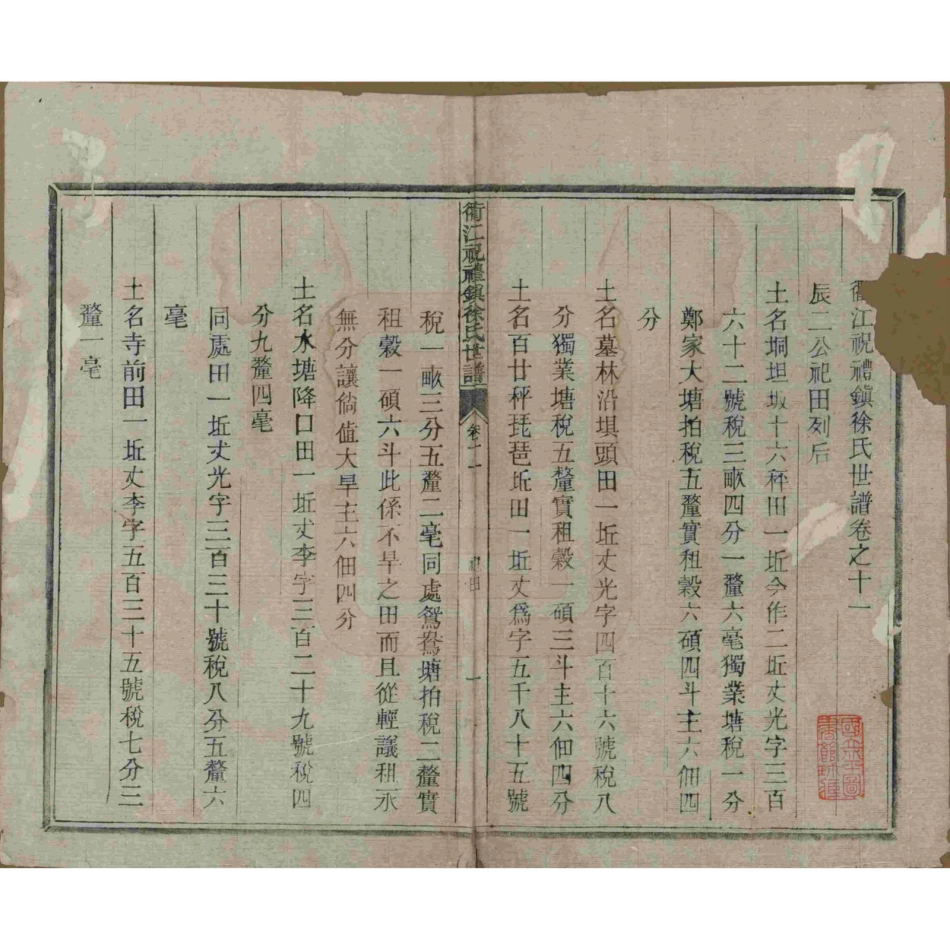 衢江祝禮鎮徐氏世譜卷之十一
辰二公祀田列后
土名垌坦坂十六秤田一坵今作二坵丈光字三百
六十二號稅三畝四分一釐六毫獨業塘稅一分
鄭家大塘拍稅五釐實租穀六碩四斗主六佃四
分
土名墓林沿垻頭田一坵丈光字四百十六號稅八
分獨業塘稅五釐實租穀一碩三斗主六佃四分
土名百廿秤琵琶坵田一坵丈為字五千八十五號
衢江祝禮鎮徐氏世譜
卷十一
祀田
一
稅一畝三分五釐二毫同處鴛鴦塘拍稅二釐實
租穀一碩六斗此係不旱之田而且從輕議租永
無分讓倘值大旱主六佃四分
土名水塘降口田一坵丈李字三百二十九號稅四
分九釐四毫
同處田一坵丈光字三百三十號稅八分五釐六
毫
土名寺前田一坵丈李字五百三十五號稅七分三
釐一毫